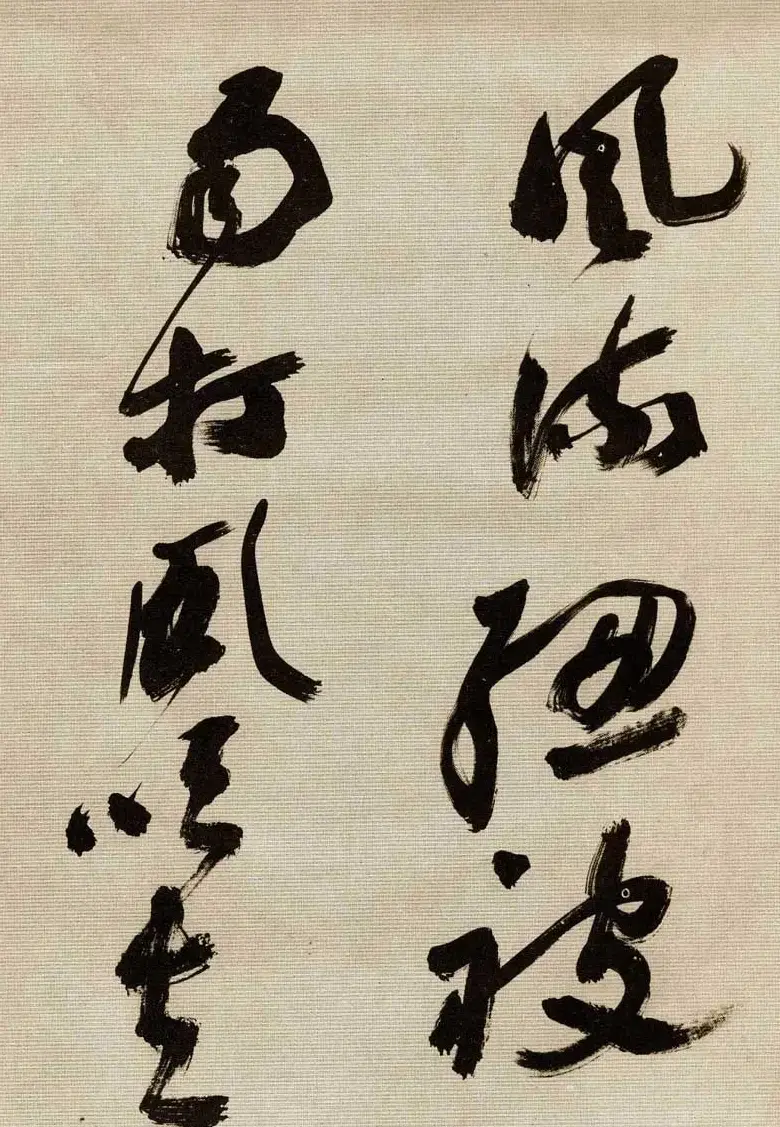 風流總被
雨打風吹去